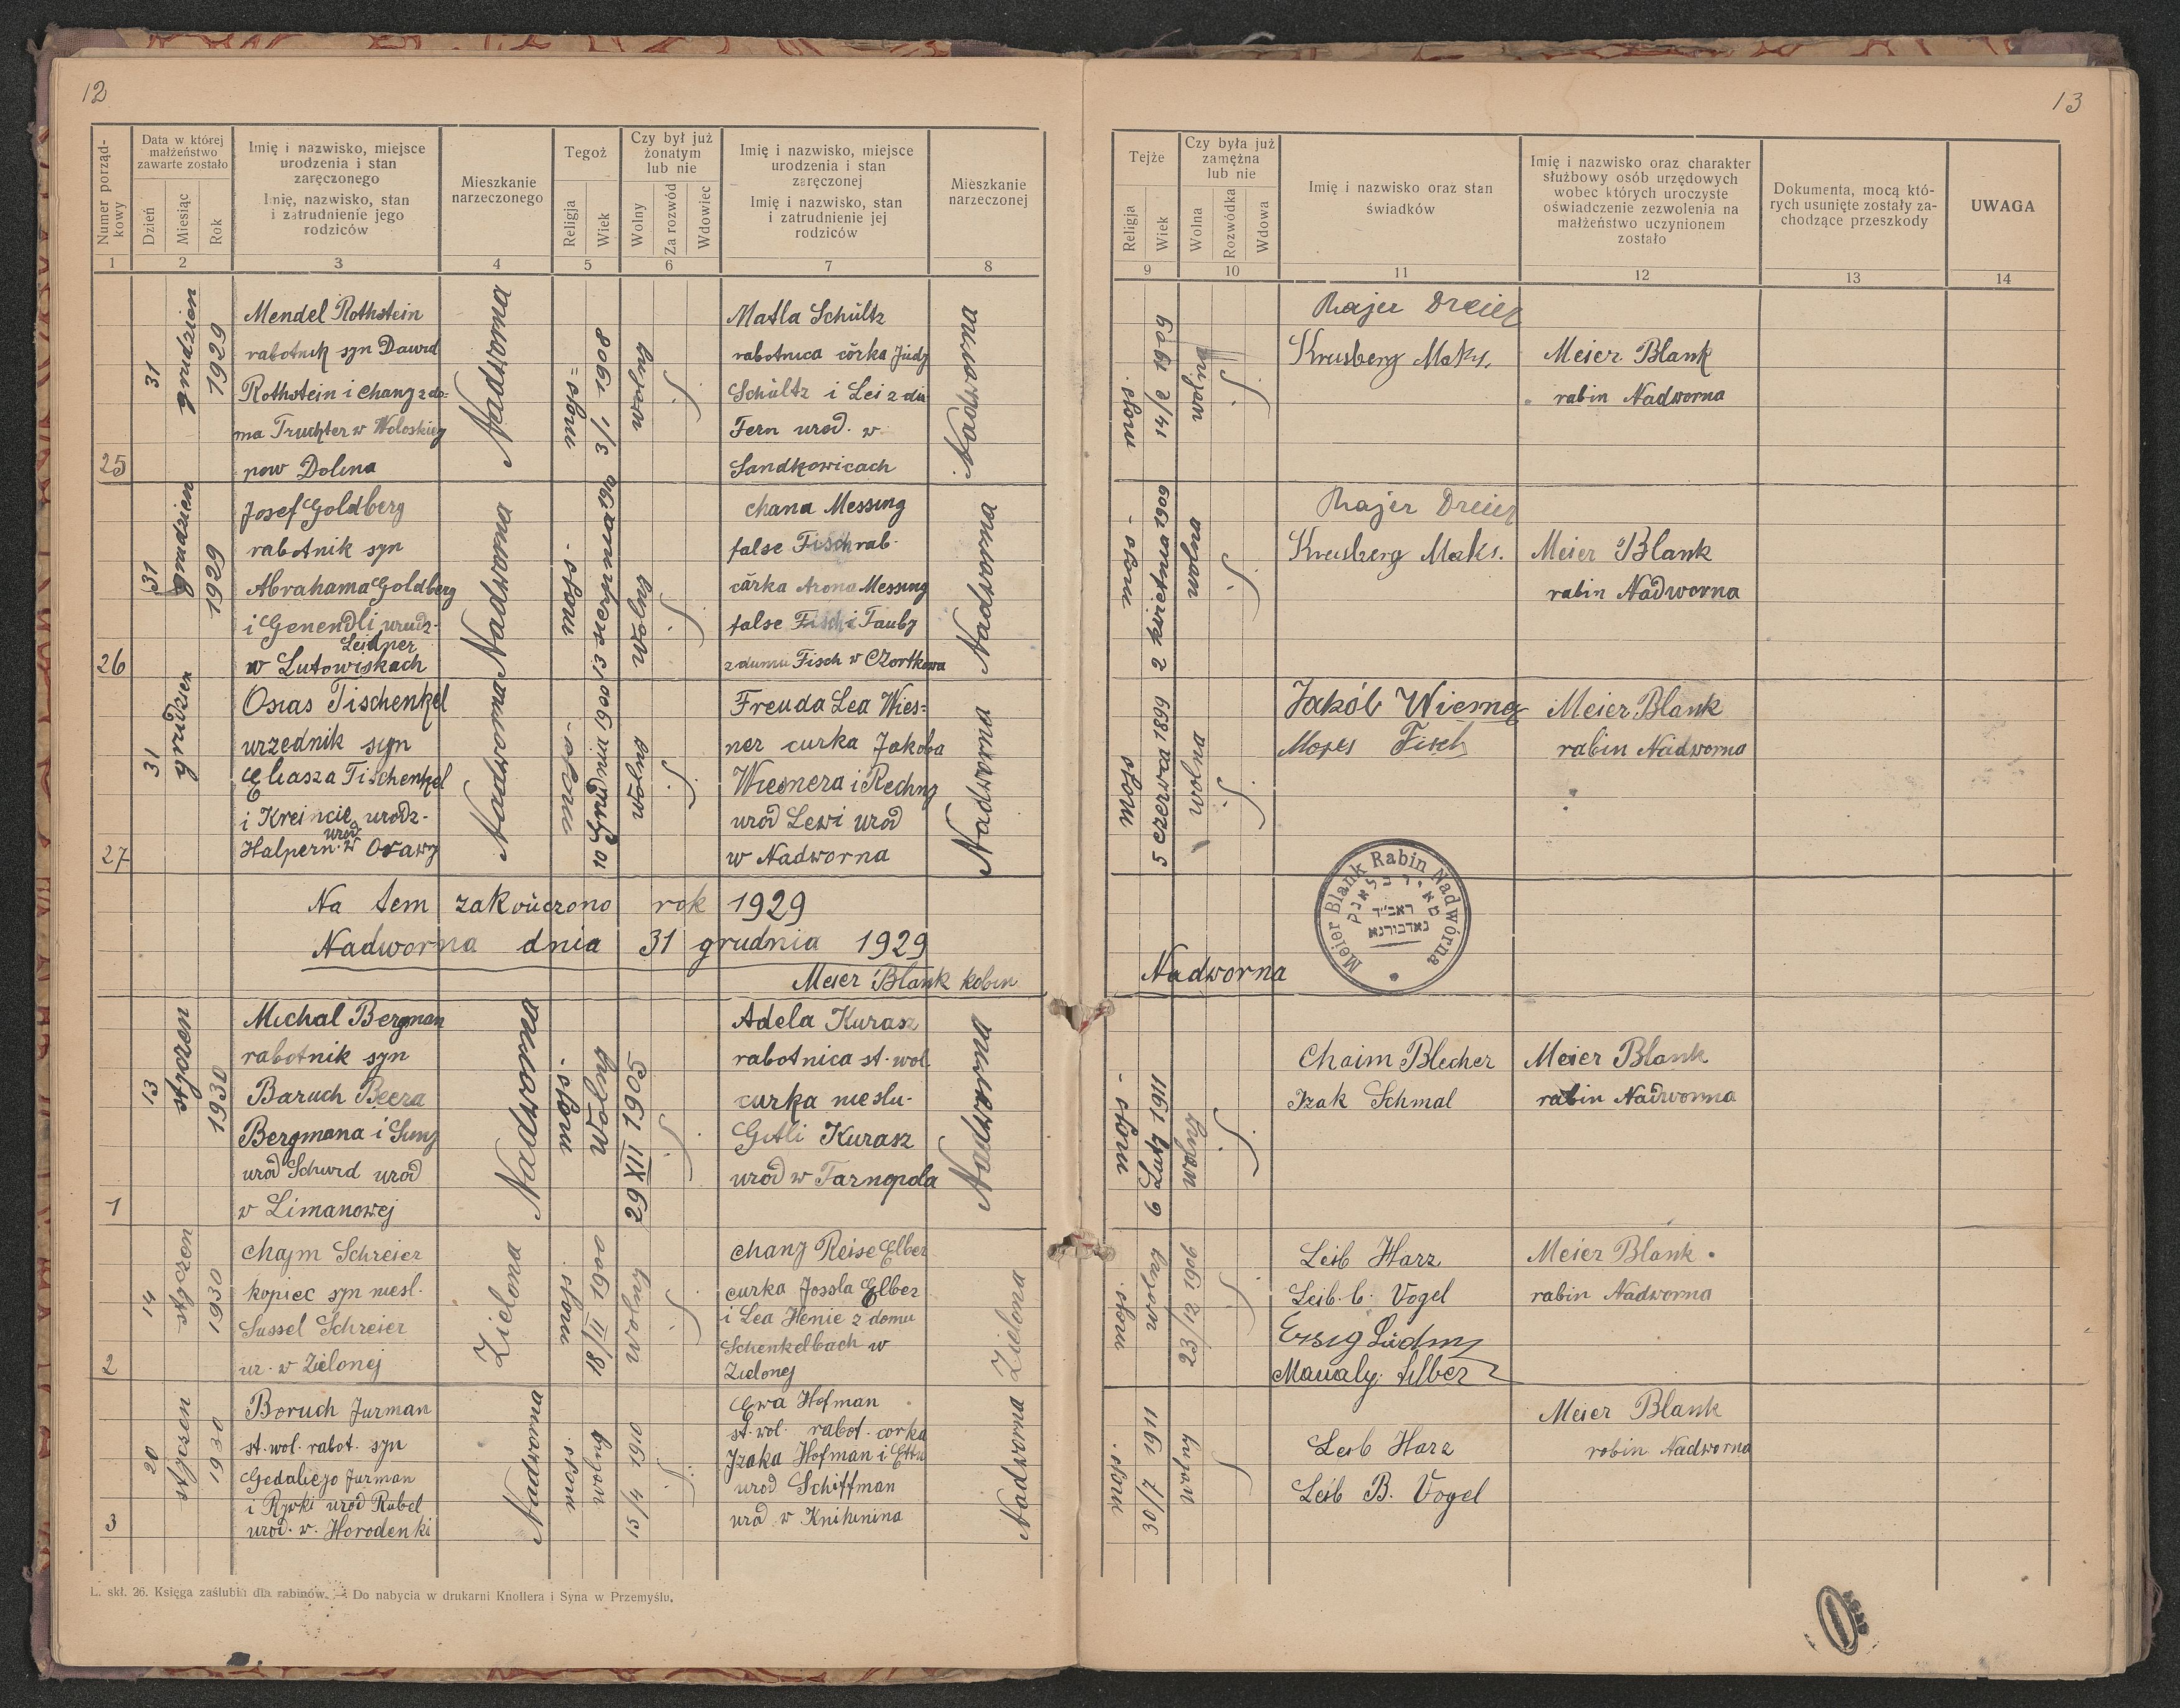 12
Numer porządkowy
Data w której małżeństwo zawarte zostało
Dzień
Miesiąc
Rok
Imię i nazwisko, miejsce urodzenia i stan zaręczonego
Imię, nazwisko, stan i zatrudnienie jego rodziców
Mieszkanie narzeczonego
Tegoż
Religja
Wiek
Czy był już żonatym lub nie
Wolny
Za rozwód
Wdowiec
Imię i nazwisko, miejsce urodzenia i stan zaręczonej
Imię i nazwisko, stan i zatrudnienie jej rodziców
Mieszkanie narzeczonej
1 2 3 4 5 6 7 8
25
31
grudzien
1929
Mendel Rothstein
rabotnik syn Dawid
Rothstein i Chany z do=
ma Truchter w Woloskieg
pow Dolina
Nadworna
3/1 1908
wolny
Matla Schültz
rabotnica córka Judy
Schültz i Lei z du
Fern urod. w
Sandkowicach
Nadworna
26
31
grudzien
1929
Josef Goldberg
rabotnik syn
Abrahama Goldberg
i Genendli urodz-
Leidner
w Lutowiskach
Nadworna
13 sierpnia 1910
wolny
Chana Messing
false Fisch rab.
córka Arona Messing
false Fisch i Tauby
z dumu Fisch w Czortkowa
Nadworna
27
31
grudzien
Osias Tischenkel
urzednik syn
Eliasza Tischenkel
i Kreincie urodz-
urod
Halpern w Orawy
Nadworna
10 Grudnia 1900
wolny
Freuda Lea Wies=
ner curka Jakoba
Wiesnera i Rechny
urod Lewi urod
w Nadworna
Nadworna
Na tem zakończono rok 1929
Nadworna dnia 31 grudnia 1929
Meier Blank rabin
1
13
styczen
1930
Michal Bergman
rabotnik syn
Baruch Beera
Bergmana i Suny
urod Schurd urod
w Limanowej
Nadworna
wolny
29 XII 1905
Adela Kurasz
rabotnica st. wol.
curka nieslu-
Gitli Kurasz
urod w Tarnopola
Nadworna
2
14
styczen
1930
Chaym Schreier
kopiec syn niesl.
Sussel Schreier
ur. w Zielonej
Zielona
18/II 1900
wolny
Chany Reise Elber
curka Jossla Elber
i Lea Henie z domu
Schenkelbach w
Zielonej
Zielona
3
20
styczen
1930
Boruch Jurman
st. wol. rabot. syn
Gedaliego Jurman
i Rywki urod Rubel
urod. w. Horodenki
Nadworna
wolny
15/4 1910
Ewa Hofman
st. wol. rabot. corka
Izaka Hofman i Etta
urod Schiffman
urod w Knihinina
Nadworna
L. skł. 26. Księga zaślubin dla rabinów. — Do nabycia w drukarni Knollera i Syna w Przemyślu.
13
Tejże
Religja
Wiek
Czy była już zamężna lub nie
Wolna
Rozwódka
Wdowa
Imię i nazwisko oraz stan świadków
Imię i nazwisko oraz charakter służbowy osób urzędowych wobec których uroczyste oświadczenie zezwolenia na małżeństwo uczynionem zostało
Dokumenta, mocą których usunięte zostały zachodzące przeszkody
UWAGA
9 10 11 12 13 14
14/2 1909
wolny
Majer Dreier
Kreisberg Maks.
Meier Blank
rabin Nadworna
2 kwietnia 1909
wolna
Majer Dreier
Kreisberg Maks.
Meier Blank
rabin Nadworna
5 czerwca 1899
wolna
Jakób Wiesner
Moses Fisch
Meier Blank
rabin Nadworna
Meier Blank Rabin Nadwórna
מאיר בלאנק
ראב״ד
נאדבורנא
Nadworna
6 Luty 1911
wolny
Chaim Blecher
Izak Schmal
Meier Blank
rabin Nadworna
wolny
23/12 1906
Leib Harz
Leib. b. Vogel
Meier Blank
rabin Nadworna
30/7 1911
wolny
Leib Harz
Leib B. Vogel
Meier Blank
rabin Nadworna